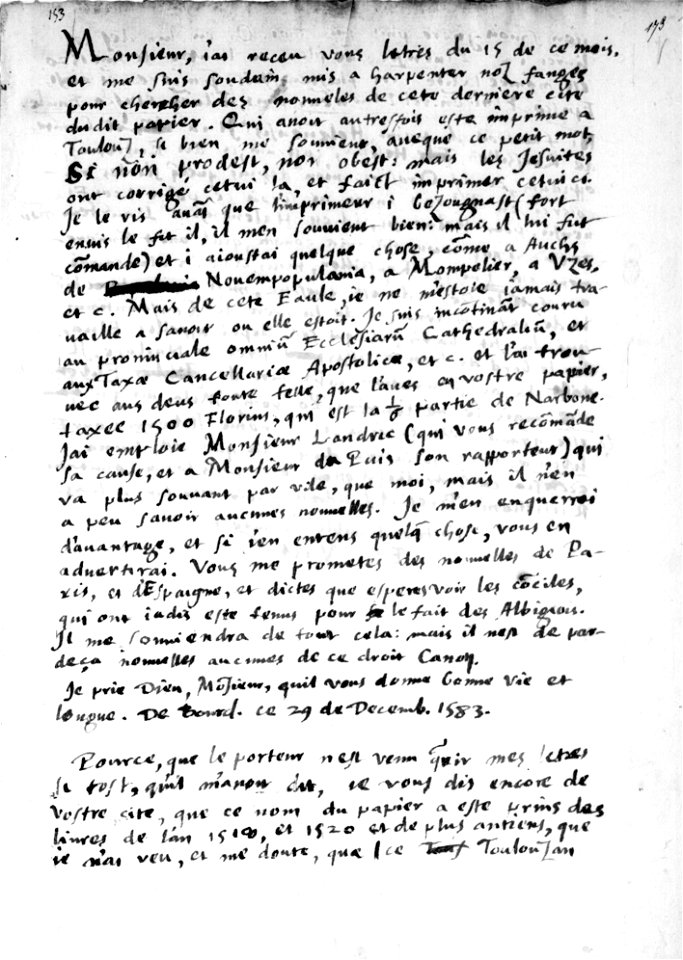 153
173
Monsieur, i'ai receu vous letres du 15 de ce mois.
et me suis soudain mis a harpenter noz fanges
pour chercher des nouueles de cete derniere cite
dudit papier. Qui auoit autresfois este imprime a
Toulouz, si bien me souuient, aueque ce petit mot,
Si non prodest, non obest: mais les Jesuites
ont corrigé cetui la, et faict imprimer cetui ci.
Je le vis auāt que l'imprimeur i besougnast (fort
enuis le fit il, il m'en souuient bien: mais il lui fut
cōmande) et i aioustai quelque chose, cōme a Auchs
de Nouempopulania, a Mompelier, a Vzes,
et c. Mais de cete Eaule, ie ne m'estoie iamais tra-
uaille a sauoir ou elle estoit. Je suis incōtināt couru
au prouinciale omniū Ecclesiarū Cathedraliū, et
aux Taxæ Cancellariæ Apostolicæ, et c. et l'ai trou
uee aus deus toute telle, que l'aues en vostre papier,
taxee 1500 Florins, qui est la 1/6 partie de Narbone.
J'ai emploie Monsieur Landric (qui vous recōmāde
sa cause, et a Monsieur du Puis son rapporteur) qui
va plus souuant par vile, que moi, mais il n'en
a peu sauoir aucunes nouuelles. Je m'en enquerrei
d'auantage, et si i'en entens quelq chose, vous en
aduertirai. Vous me prometes des nouuelles de Pa-
ris, et d'Espaigne, et dictes que esperes voir les cōciles,
qui ont iadis este tenus pour le fait des Albigeois.
Il me souuiendra de tout cela: mais il n'est de par-
deça nouuelles aucunes de ce droit Canon.
Je prie Dieu, Mōsieur, qu'il vous donne bonne vie et
longue. De Bourd. ce 29 de Decemb. 1583.
Pource, que le porteur n'est venu querir mes letres
si tost, qu'il m'auoit dit, ie vous dis encore de
vostre cite, que ce nom du papier a este prins des
liures de l'an 1518, et 1520 et de plus antiens, que
ie n'ai veu, et me doute, que ce Toulouzan